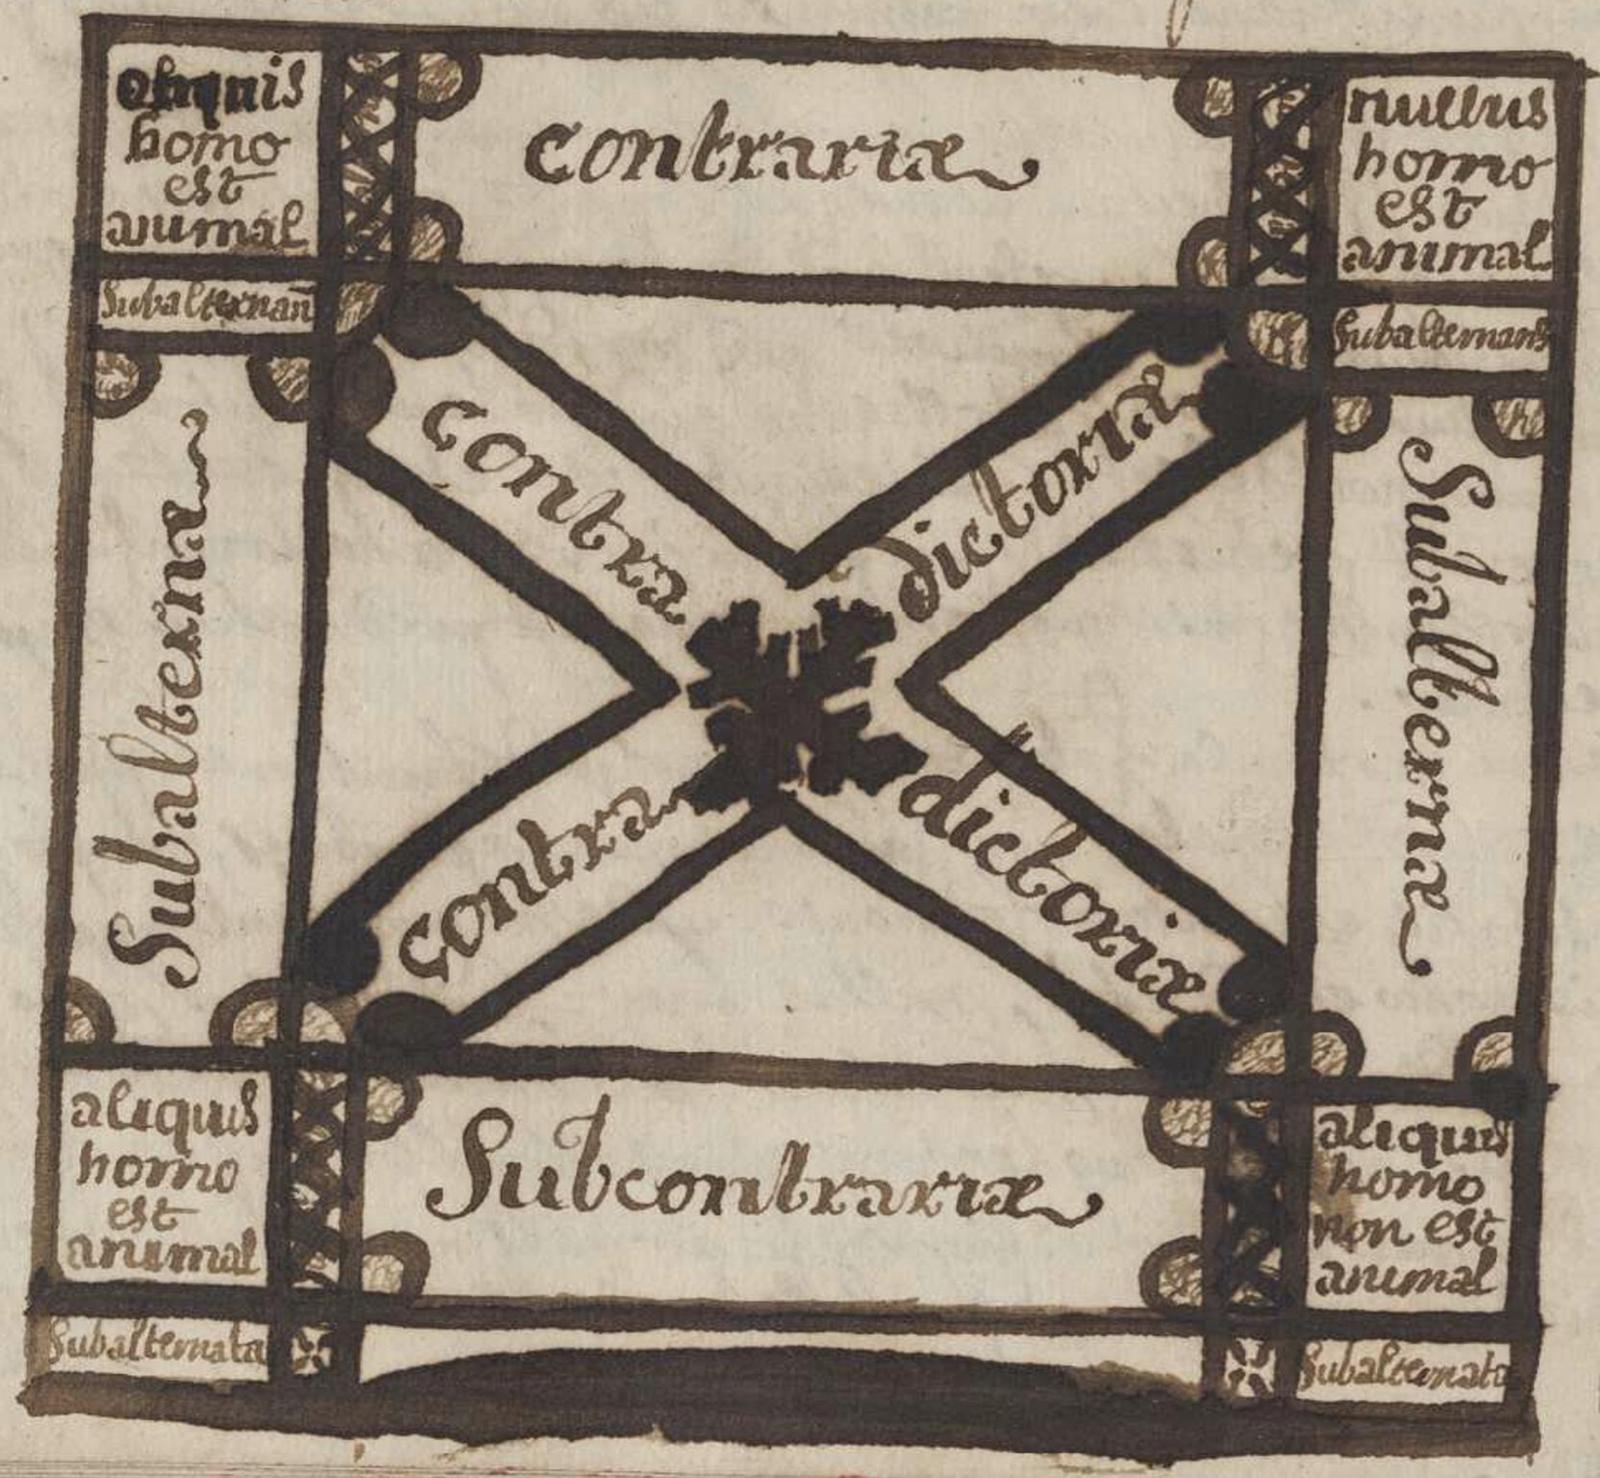 homo
est
animal
contrariæ
nullus
homo
est
animal
Subalternan̄
Subalternans
Subalternæ
contra
dictoriæ
Subalternæ
contra
dictoriæ
aliquis
homo
est
animal
Subcontrariæ
aliquis
homo
non est
animal
Subalternata
Subalternata